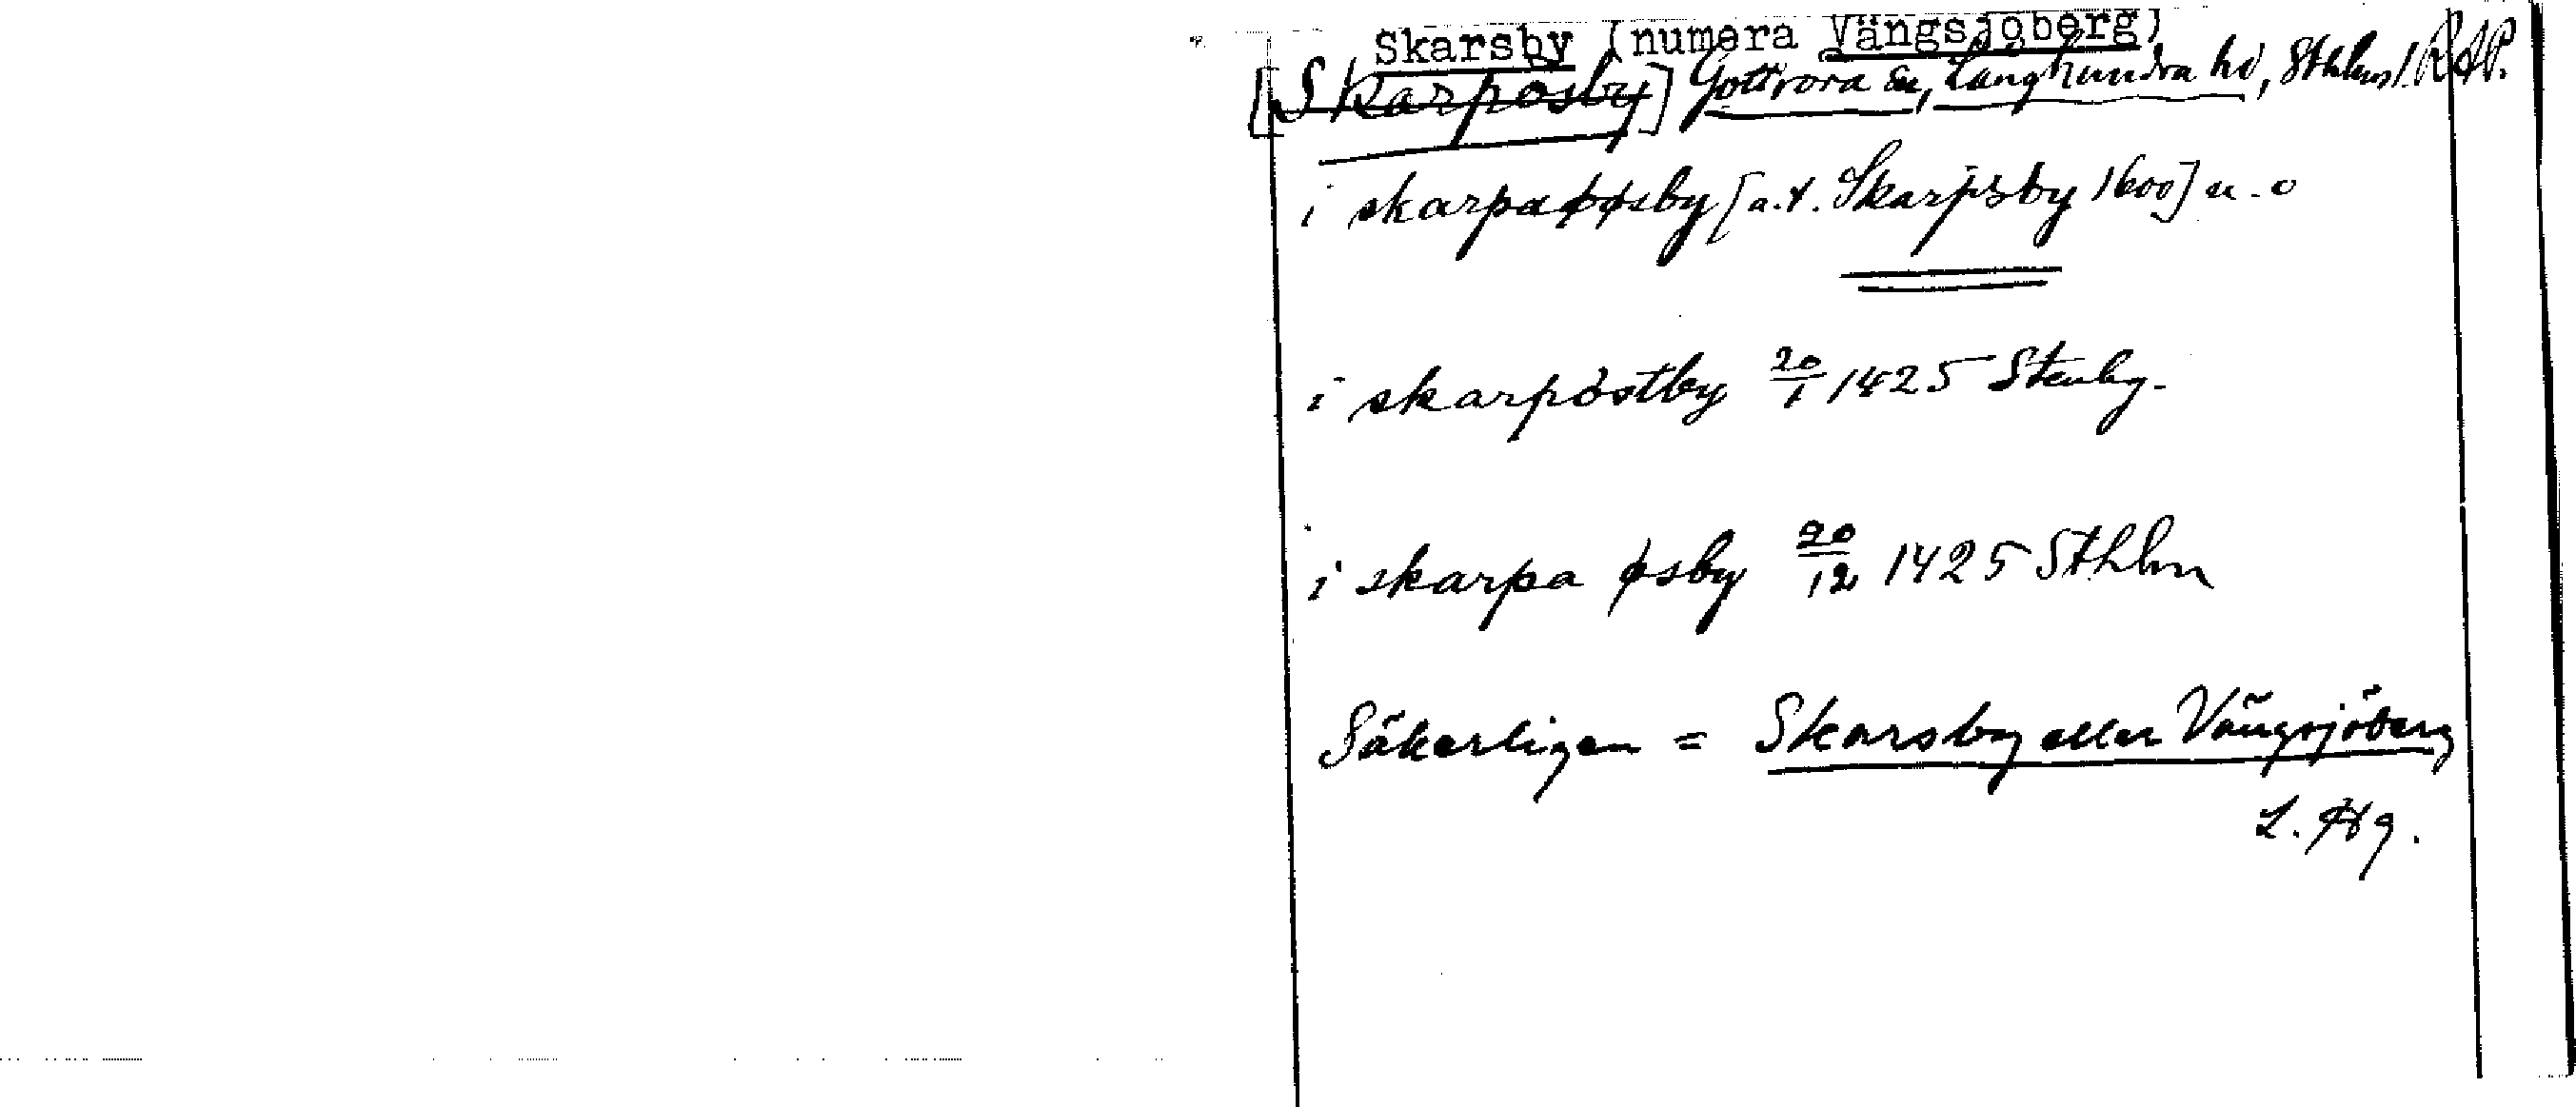 Skarsby (numera Vängsjöberg)
[Skarpösby] Gottröra sn, Långhundra hd, Sthlm l. RAP.
i skarpaøøsby [a.t. Skarpsby 1600] u. o
i skarpöstby 20/1 1425 Stenby.
i skarpa øsby 20/12 1425 Sthlm
Säkerligen = Skarsby eller Vängsjöberg
L. Hg.